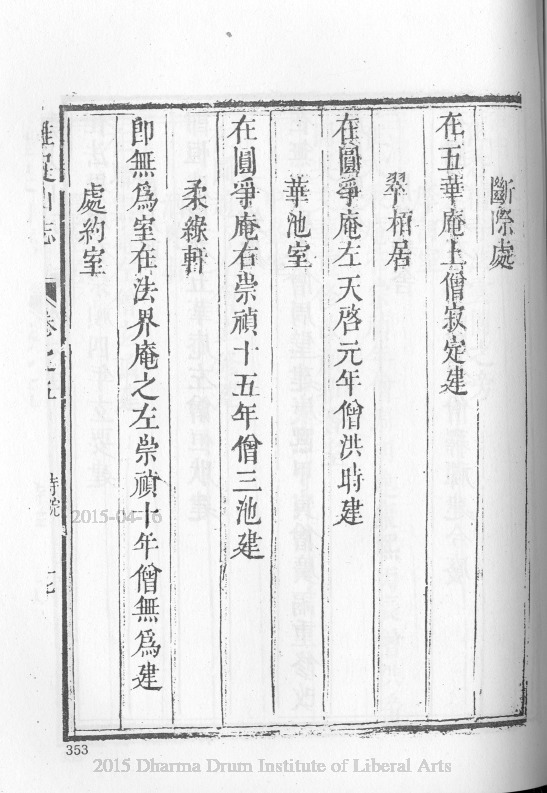 斷際處
在五華庵上僧寂定建
翠栢居
在圓爭庵左天啓元年僧洪時建
華池室
在圓爭庵右崇禎十五年僧三池建
柔綠軒
卽無爲室在法界庵之左崇禎十年僧無爲建
處約室
山志 卷之五 寺院
2015-04-16
353
2015 Dharma Drum Institute of Liberal Arts